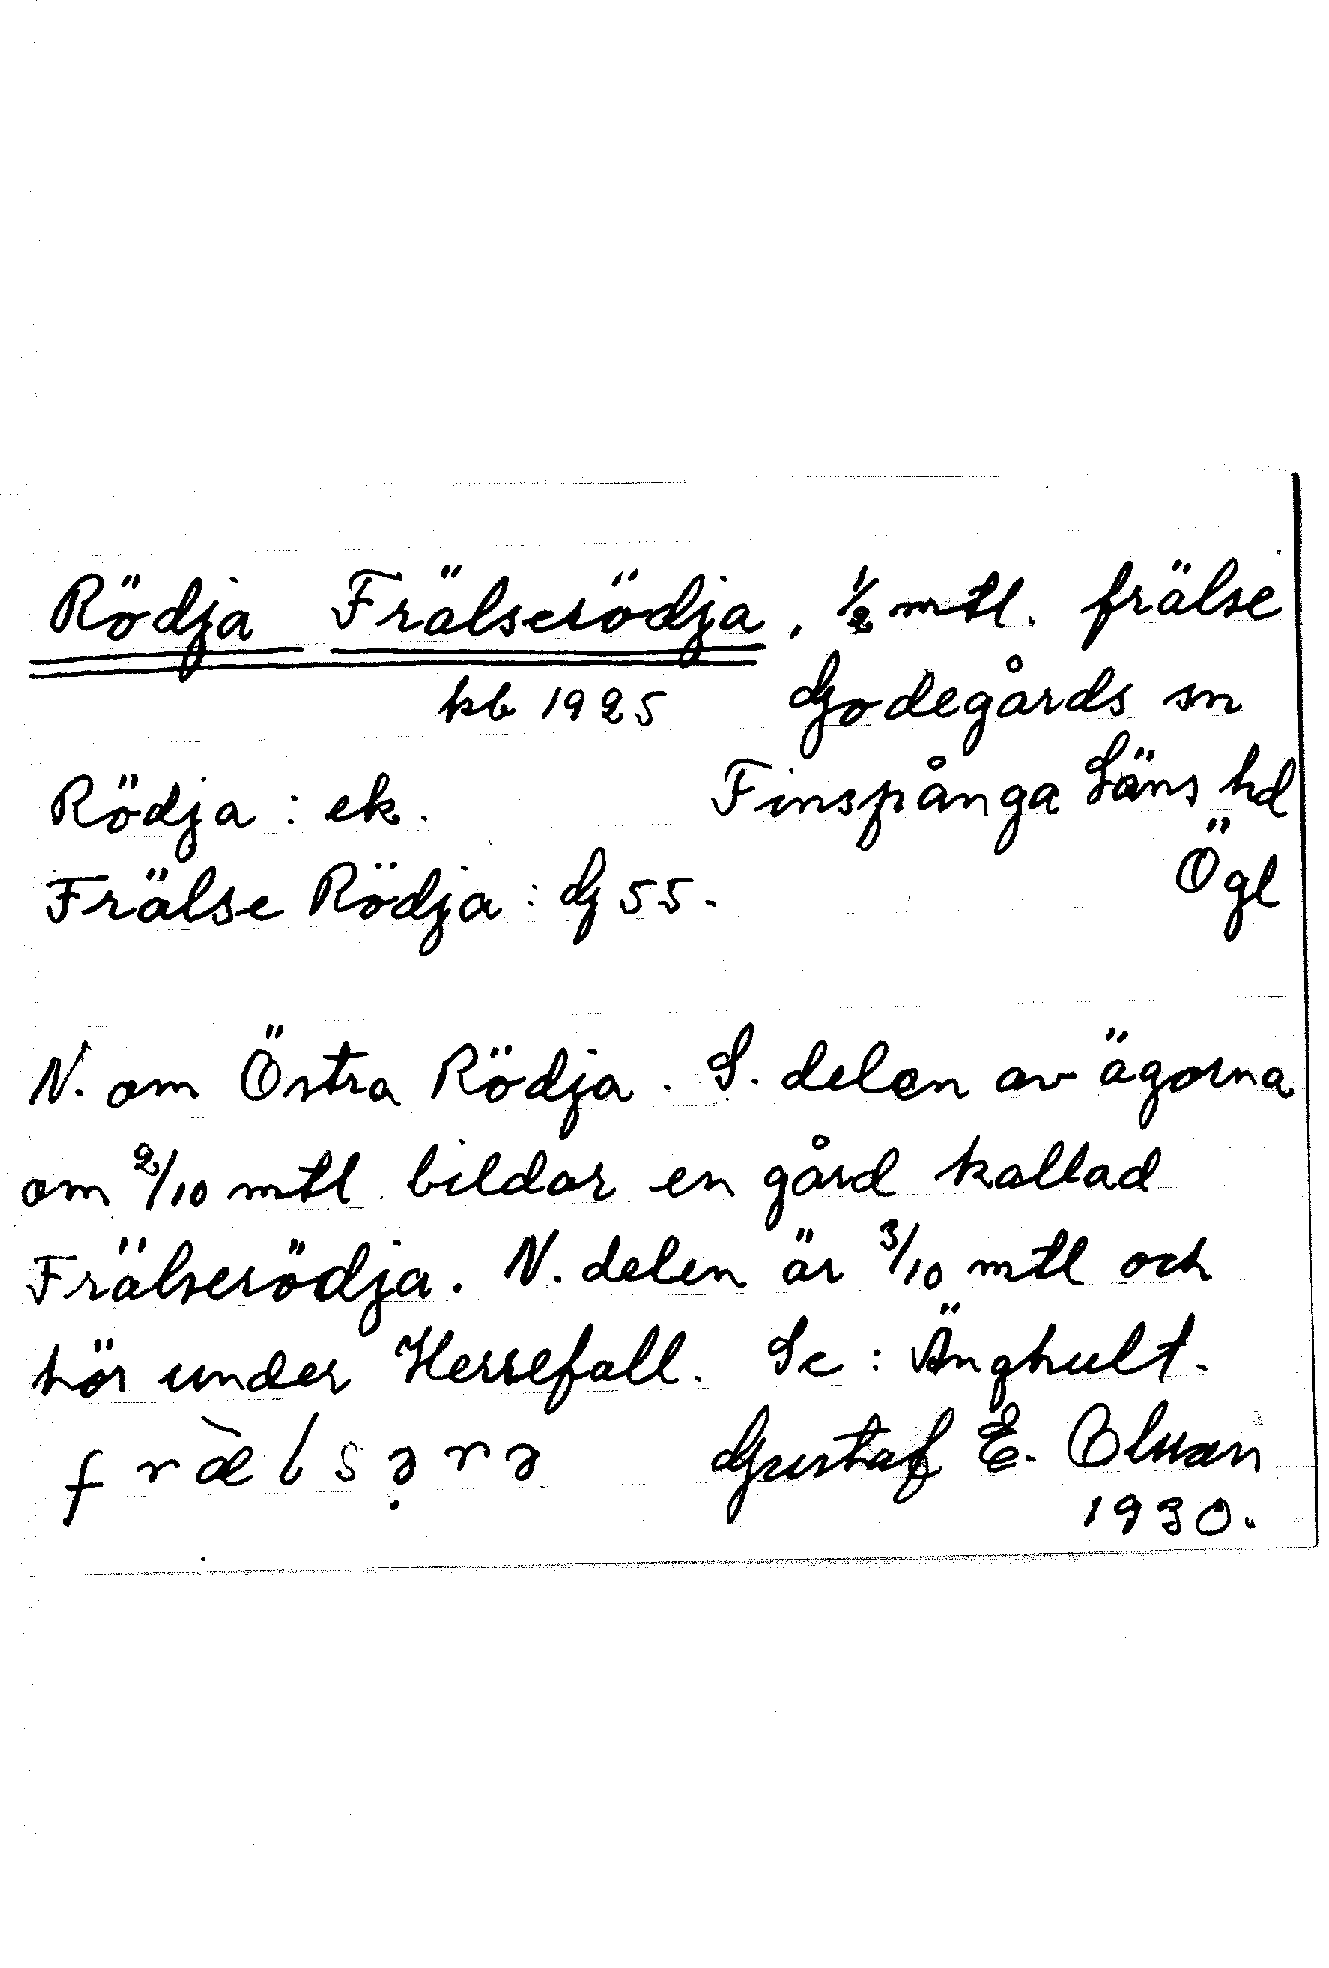 Rödja Frälserödja, 1/2 mtl. frälse
kb 1925 Godegårds sn
Rödja : ek. Finspånga Läns hd
Frälse Rödja : dj 55. Ögl
N. om Östra Rödja. S. delen av ägorna
om 2/10 mtl bildar en gård kallad
Frälserödja. N. delen är 3/10 mtl och
hör under Herrefall. Se : Änghult.
Gustaf E. Olsson
1930.